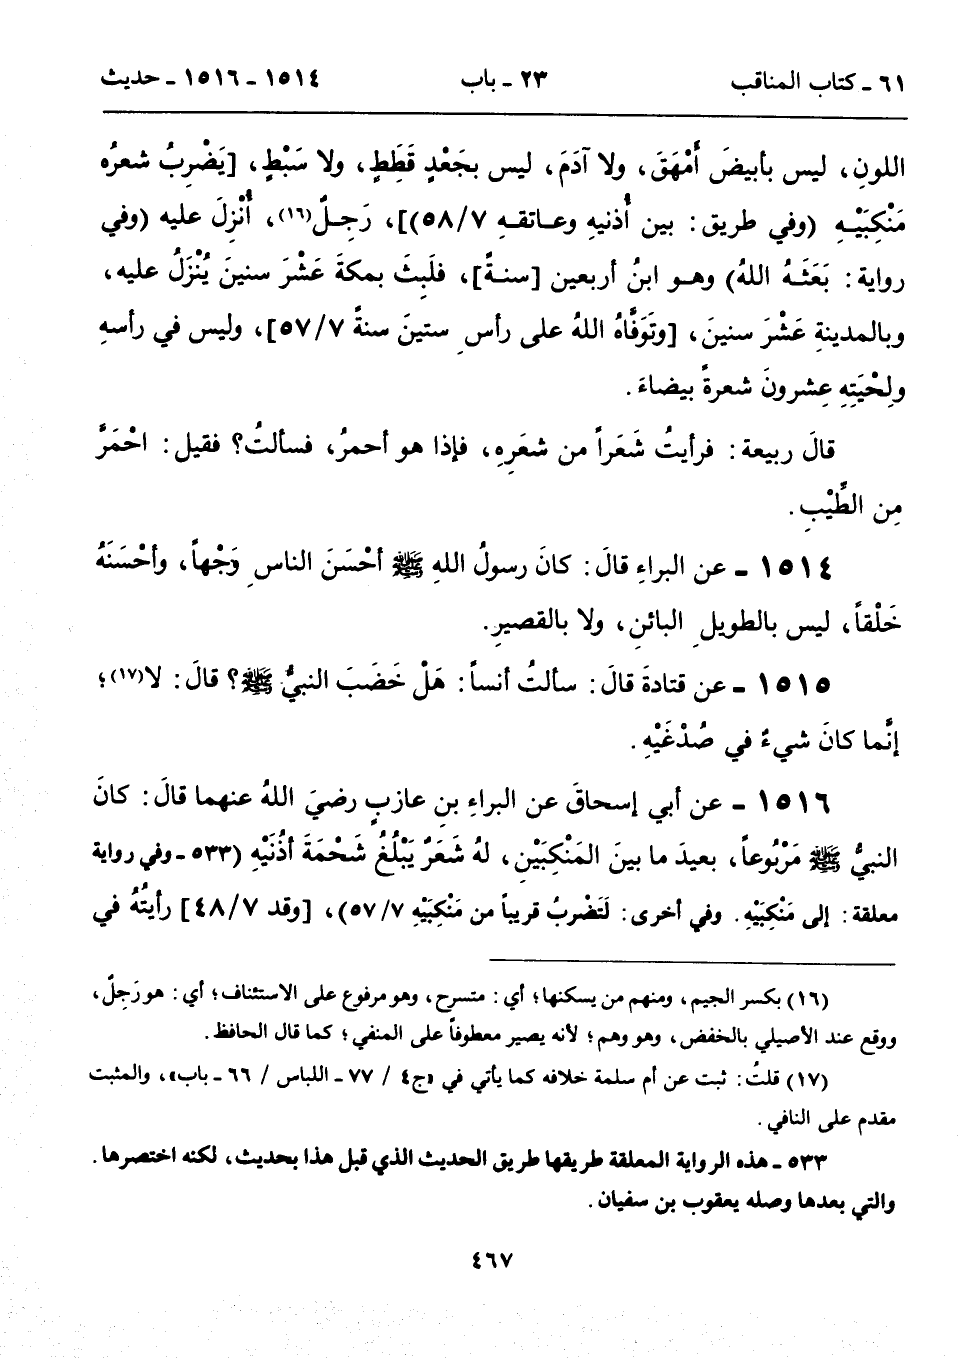 ٦١ ـ كتاب المناقب ٢٣ ـ باب ١٥١٤ ـ ١٥١٦ ـ حديث
اللونِ، ليس بأبيضَ أَمْهَقَ، ولا آدَمَ، ليس بجَعْدٍ قَطَطٍ، ولا سَبْطٍ، [يَضْرِبُ شعرُه
مَنْكِبَيْـهِ (وفي طريق: بين أُذنيهِ وعـاتقـهِ ٥٨/٧)]، رَجِـلٌ(١٦)، أُنْزِلَ عليه (وفي
رواية: بَعَثَـهُ اللهُ) وهـو ابنُ أربعين [سنـةً]، فلَبِثَ بمكةَ عَشْرَ سنينَ يُنْزَلُ عليه،
وبالمدينةِ عَشْرَ سنينَ، [وتَوَفَّاهُ اللهُ على رأسِ ستينَ سنةً ٥٧/٧]، وليس في رأسهِ
ولِحْيَتِهِ عِشرونَ شعرةً بيضاءَ.
قالَ ربيعة: فرأيتُ شَعَراً من شعَرِهِ، فإذا هو أحمرُ، فسألتُ؟ فقيل: احْمَرَّ
مِن الطِّيْبِ.
١٥١٤ ـ عن البراءِ قالَ: كانَ رسولُ اللهِ ﷺ أحْسَنَ الناسِ وَجْهاً، وأحْسَنَهُ
خَلْقاً، ليس بالطويلِ البائنِ، ولا بالقصيرِ.
١٥١٥ ـ عن قتادةَ قالَ: سألتُ أنساً: هَلْ خَضَبَ النبيُّ ﷺ؟ قالَ: لا(١٧)؛
إنَّما كانَ شيءٌ في صُدْغَيْهِ.
١٥١٦ ـ عن أبي إسحاقَ عن البراءِ بنِ عازبٍ رضيَ اللهُ عنهما قالَ: كانَ
النبيُّ ﷺ مَرْبُوعاً، بعيدَ ما بينَ المَنْكِبَيْنِ، لهُ شعَرٌ يَبْلُغُ شَحْمَةَ أذُنَيْهِ (٥٣٣ ـ وفي رواية
معلقة: إلى مَنْكِبَيْهِ. وفي أخرى: لَتَضْرِبُ قريباً من مَنْكِبَيْهِ ٥٧/٧)، [وقد ٤٨/٧] رأيتُهُ في
(١٦) بكسر الجيم، ومنهم من يسكنها؛ أي: متسرح، وهو مرفوع على الاستئناف؛ أي: هو رَجِلٌ،
ووقع عند الأصيلي بالخفض، وهو وهم؛ لأنه يصير معطوفاً على المنفي؛ كما قال الحافظ.
(١٧) قلتُ: ثبت عن أم سلمة خلافه كما يأتي في «ج٤ / ٧٧ ـ اللباس / ٦٦ ـ باب»، والمثبت
مقدم على النافي.
٥٣٣ ـ هذه الرواية المعلقة طريقها طريق الحديث الذي قبل هذا بحديث، لكنه اختصرها.
والتي بعدها وصله يعقوب بن سفيان.
٤٦٧